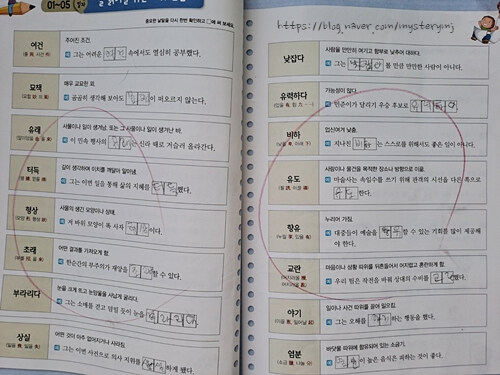 01~05
중요한 낱말을 다시 한번 확인하고 □에 써 보세요.
여건
주어진 조건.
그는 어려운 여건 속에서도 열심히 공부했다.
묘책
매우 교묘한 꾀.
곰곰이 생각해 보아도 묘책이 떠오르지 않는다.
유래
사물이나 일이 생겨남. 또는 그 사물이나 일이 생겨난 바.
이 민속 행사의 유래는 신라 때로 거슬러 올라간다.
터득
깊이 생각하여 이치를 깨달아 알아냄.
그는 어떤 일을 통해 삶의 지혜를 터득했다.
형상
사물의 생긴 모양이나 상태.
저 바위 모양이 꼭 사자 형상이다.
초래
어떤 결과를 가져오게 함.
한순간의 부주의가 재앙을 초래할 수 있다.
부라리다
눈을 크게 뜨고 눈망울을 사납게 굴리다.
그는 소매를 걷고 덤빌 듯이 눈을 부라리며
상실
어떤 것이 아주 없어지거나 사라짐.
그는 이번 사건으로 의사 지위를 상실하게 됐다.
https://blog.naver.com/mysterymj
낮잡다
사람을 만만히 여기고 함부로 낮추어 대하다.
그는 낮잡아 볼 만큼 만만한 사람이 아니다.
유력하다
가능성이 많다.
민준이가 달리기 우승 후보로
비하
업신여겨 낮춤.
지나친 비하는 스스로를 위해서도 좋은 일이 아니다.
유도
사람이나 물건을 목적한 장소나 방향으로 이끎.
마술사는 속임수를 쓰기 위해 관객의 시선을 다른 쪽으로
유도한다.
향유
누리어 가짐.
대중들이 예술을 향유할 수 있는 기회를 많이 제공해
야 한다.
교란
마음이나 상황 따위를 뒤흔들어서 어지럽고 혼란하게 함.
우리 팀은 작전을 바꿔 상대의 수비를 교란했다.
야기
일이나 사건 따위를 끌어 일으킴.
그는 오해를 야기하는 행동을 했다.
염분
바닷물 따위에 함유되어 있는 소금기.
염분이 높은 음식은 피하는 것이 좋다.